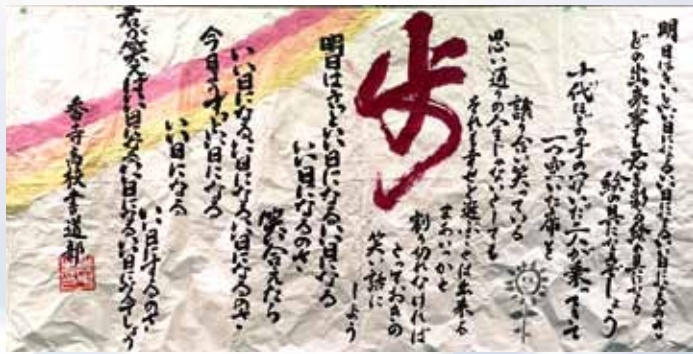 明日はきっといい日になる いい日になる いい日になるのさ
どの出来事も君を彩る絵の具になる
絵の具になるでしょう
十代ほどの手のつないだ二人が乗ってきて
一つ空いた席を
譲り合い笑っている
思い通りの人生じゃないとしても
それも幸せと選ぶことは出来る
まあいっかと
割り切れなければ
とっておきの
笑い話に
しよう
歩
明日はきっといい日になる いい日になる
いい日になるのさ
笑い合えたら
いい日になる いい日になる いい日になるのさ
今日より
いい日になる
いい日になる
君が笑えばいい日になる いい日になる いい日になるでしょう
いい日にするのさ
香寺高校書道部